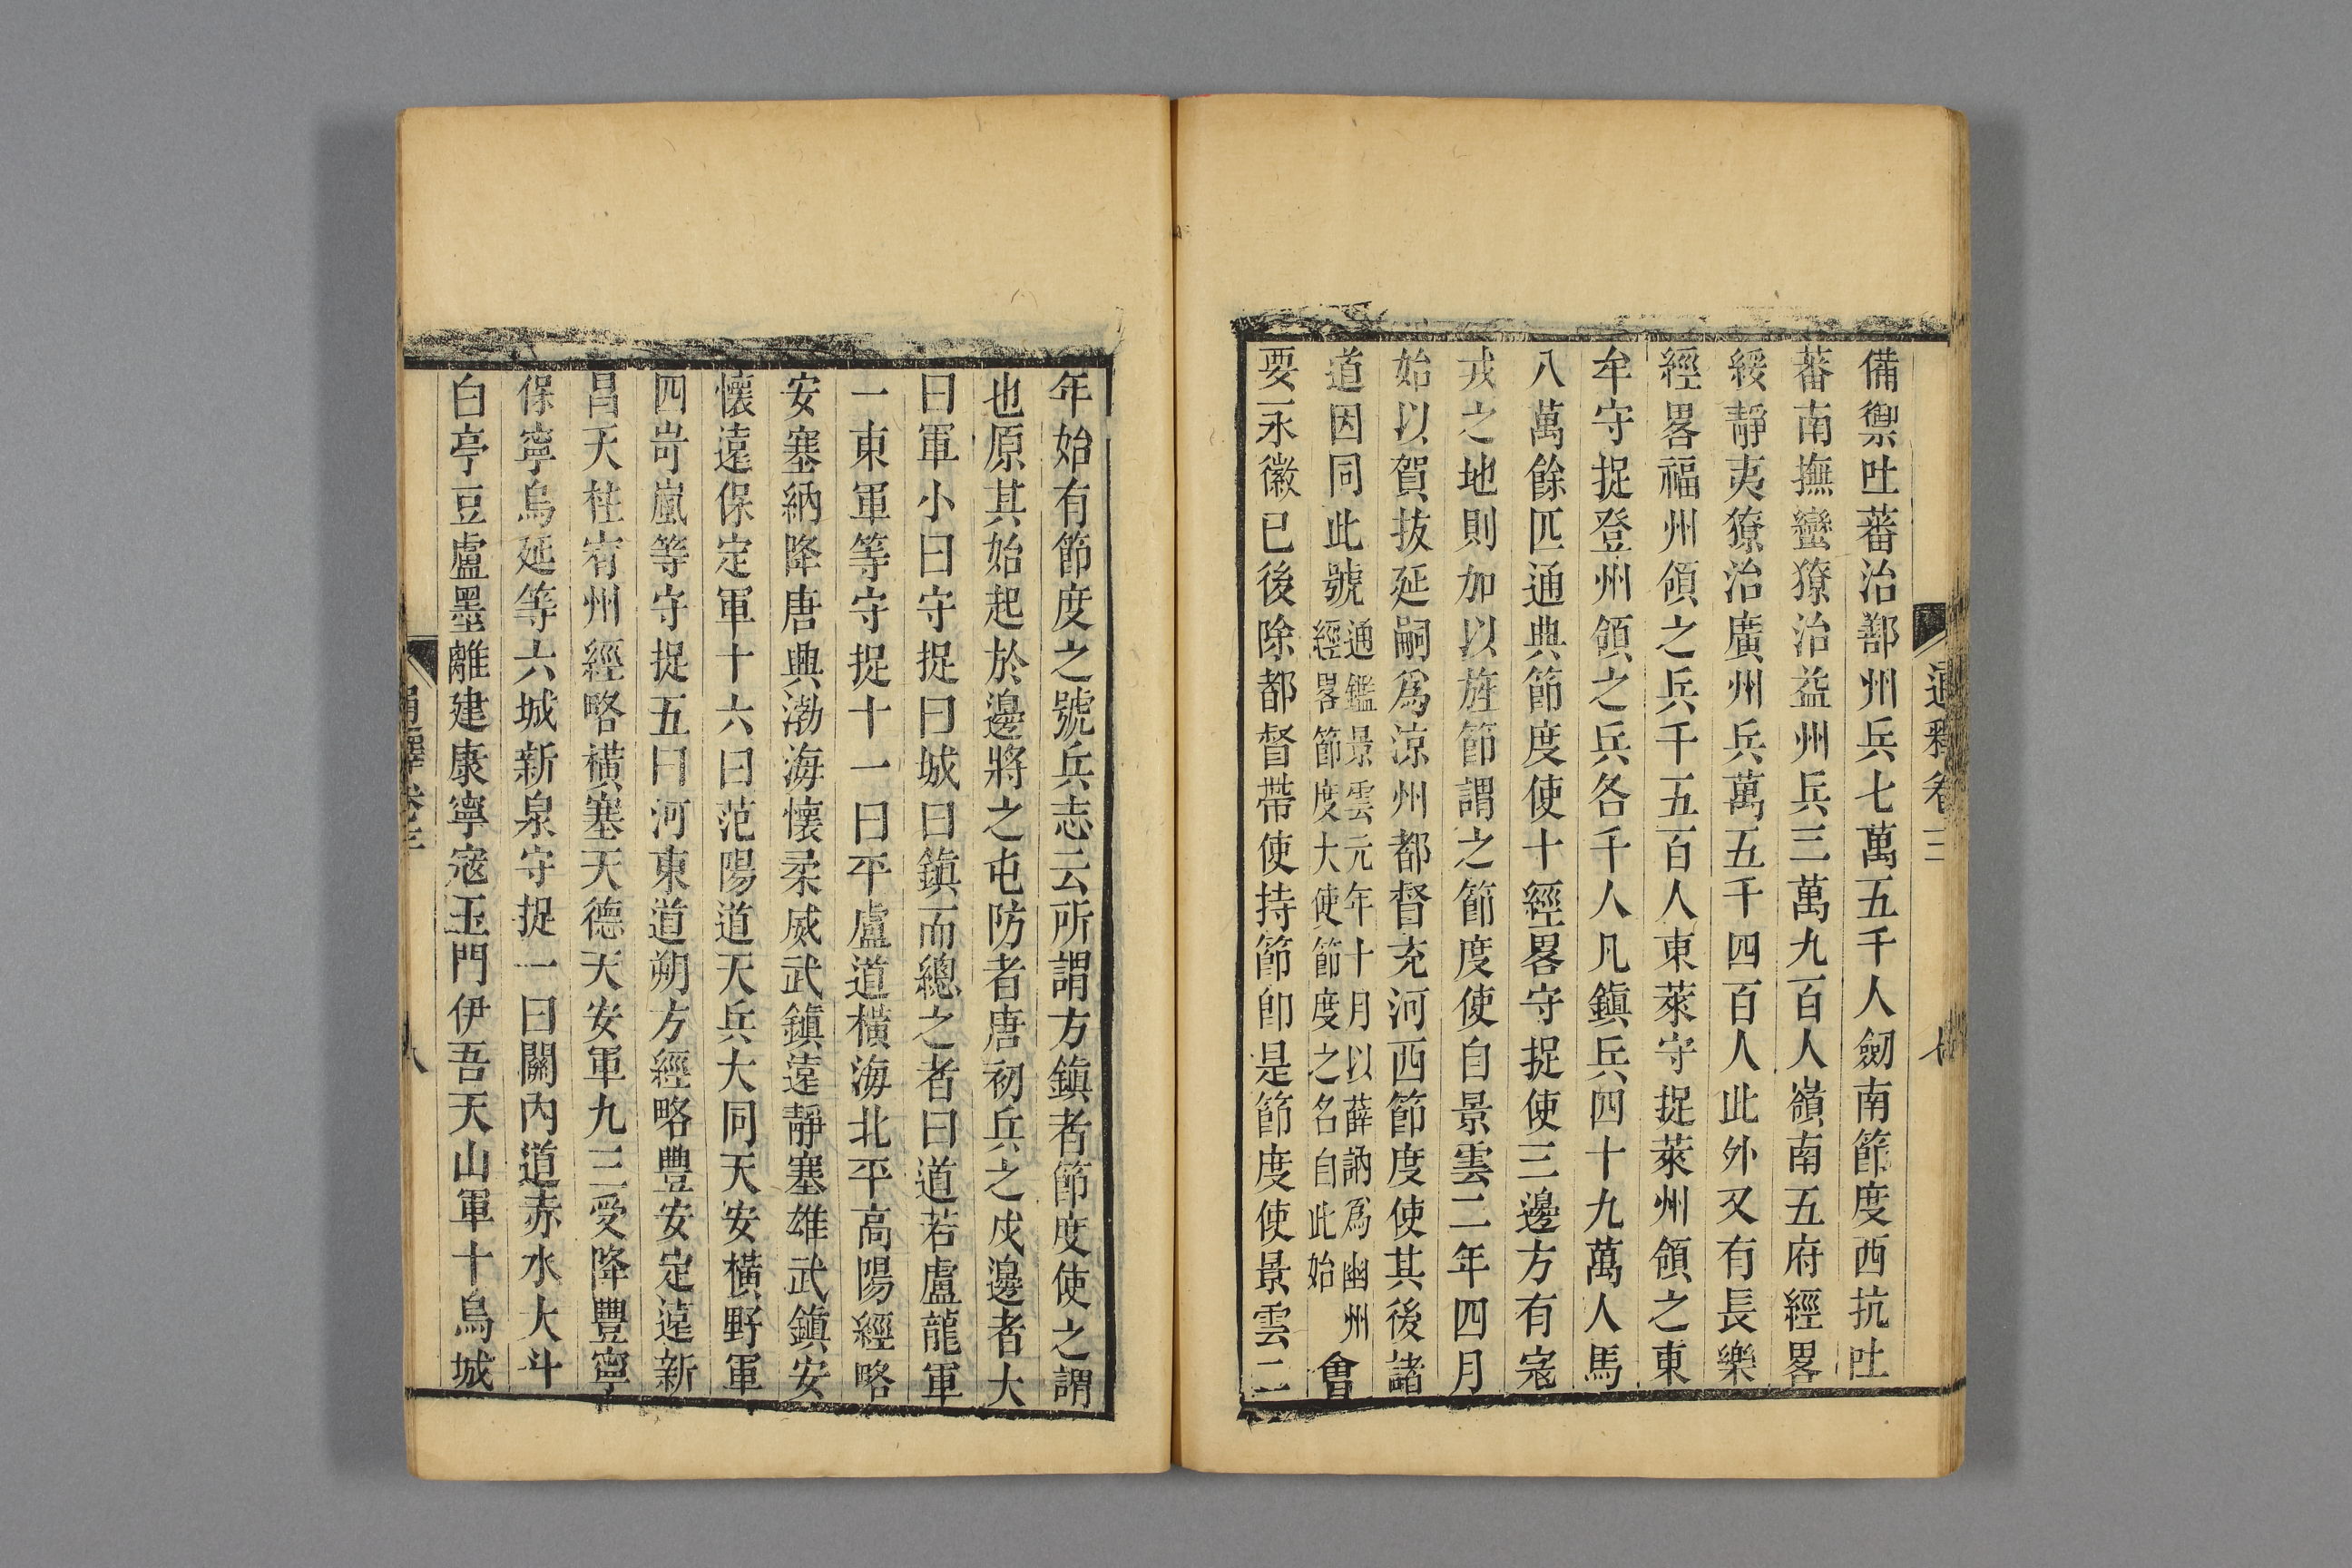 通釋卷三 七
備禦吐蕃治鄯州兵七萬五千人劒南節度西抗吐
蕃南撫蠻獠治益州兵三萬九百人嶺南五府經畧
綏靜夷獠治廣州兵萬五千四百人此外又有長樂
經畧福州領之兵千五百人東萊守捉萊州領之東
牟守捉登州領之兵各千人凡鎮兵四十九萬人馬
八萬餘匹通典節度使十經畧守捉使三邊方有寇
戎之地則加以旌節謂之節度使自景雲二年四月
始以賀拔延嗣爲涼州都督充河西節度使其後諸
道因同此號通鑑景雲元年十月以薛訥爲幽州經畧節度大使節度之名自此始會
要永徽已後除都督帶使持節卽是節度使景雲二
年始有節度之號兵志云所謂方鎮者節度使之謂
也原其始起於邊將之屯防者唐初兵之戍邊者大
曰軍小曰守捉曰城曰鎮而總之者曰道若盧龍軍
一東軍等守捉十一曰平盧道橫海北平高陽經略
安塞納降唐興渤海懷柔威武鎮遠靜塞雄武鎮安
懷遠保定軍十六曰范陽道天兵大同天安橫野軍
四岢嵐等守捉五曰河東道朔方經略豐安定遠新
昌天柱宥州經略橫塞天德天安軍九三受降豐寧
保寧烏延等六城新泉守捉一曰關內道赤水大斗
白亭豆盧墨離建康寧寇玉門伊吾天山軍十烏城
通釋卷三 八